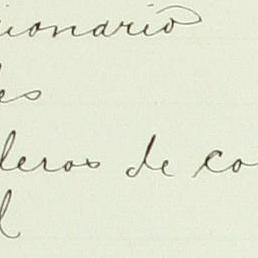 cionario
es
leros de co
l